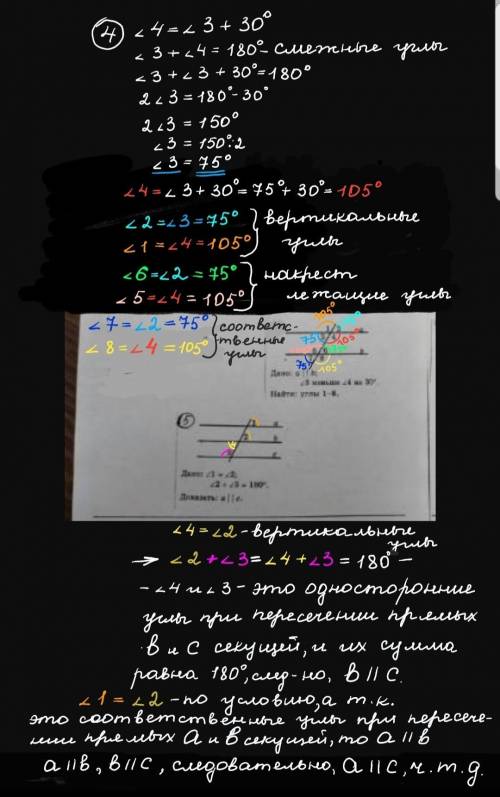 4 ∠4=∠3+30°
∠3+∠4=180°-смежные углы
∠3+∠3+30°=180°
2∠3=180°-30°
2∠3=150°
∠3=150°:2
∠3=75°
∠4=∠3+30°=75°+30°=105°
∠2=∠3=75° } вертикальные
∠1=∠4=105° углы
∠6=∠2=75° } накрест
∠5=∠4=105° лежащие углы
∠7=∠2=75° } соответс-
∠8=∠4=105° твенные
углы
105°
75°
105°
75°
105°
Дано: a || b;
∠3 меньше ∠4 на 30°.
Найти: углы 1–8.
5
1 a
2 b
c
Дано: ∠1 = ∠2;
∠2 + ∠3 = 180°.
Доказать: a || c.
∠4=∠2-вертикальные
углы
→ ∠2+∠3=∠4+∠3=180°-
-∠4 и ∠3-это односторонние
углы при пересечении прямых
в и с секущей, и их сумма
равна 180°, след-но, в || с.
∠1=∠2-по условию, а т.к.
это соответственные углы при пересече-
нии прямых а и в секущей, то а || в
а || в, в || с, следовательно, а || с, ч.т.д.